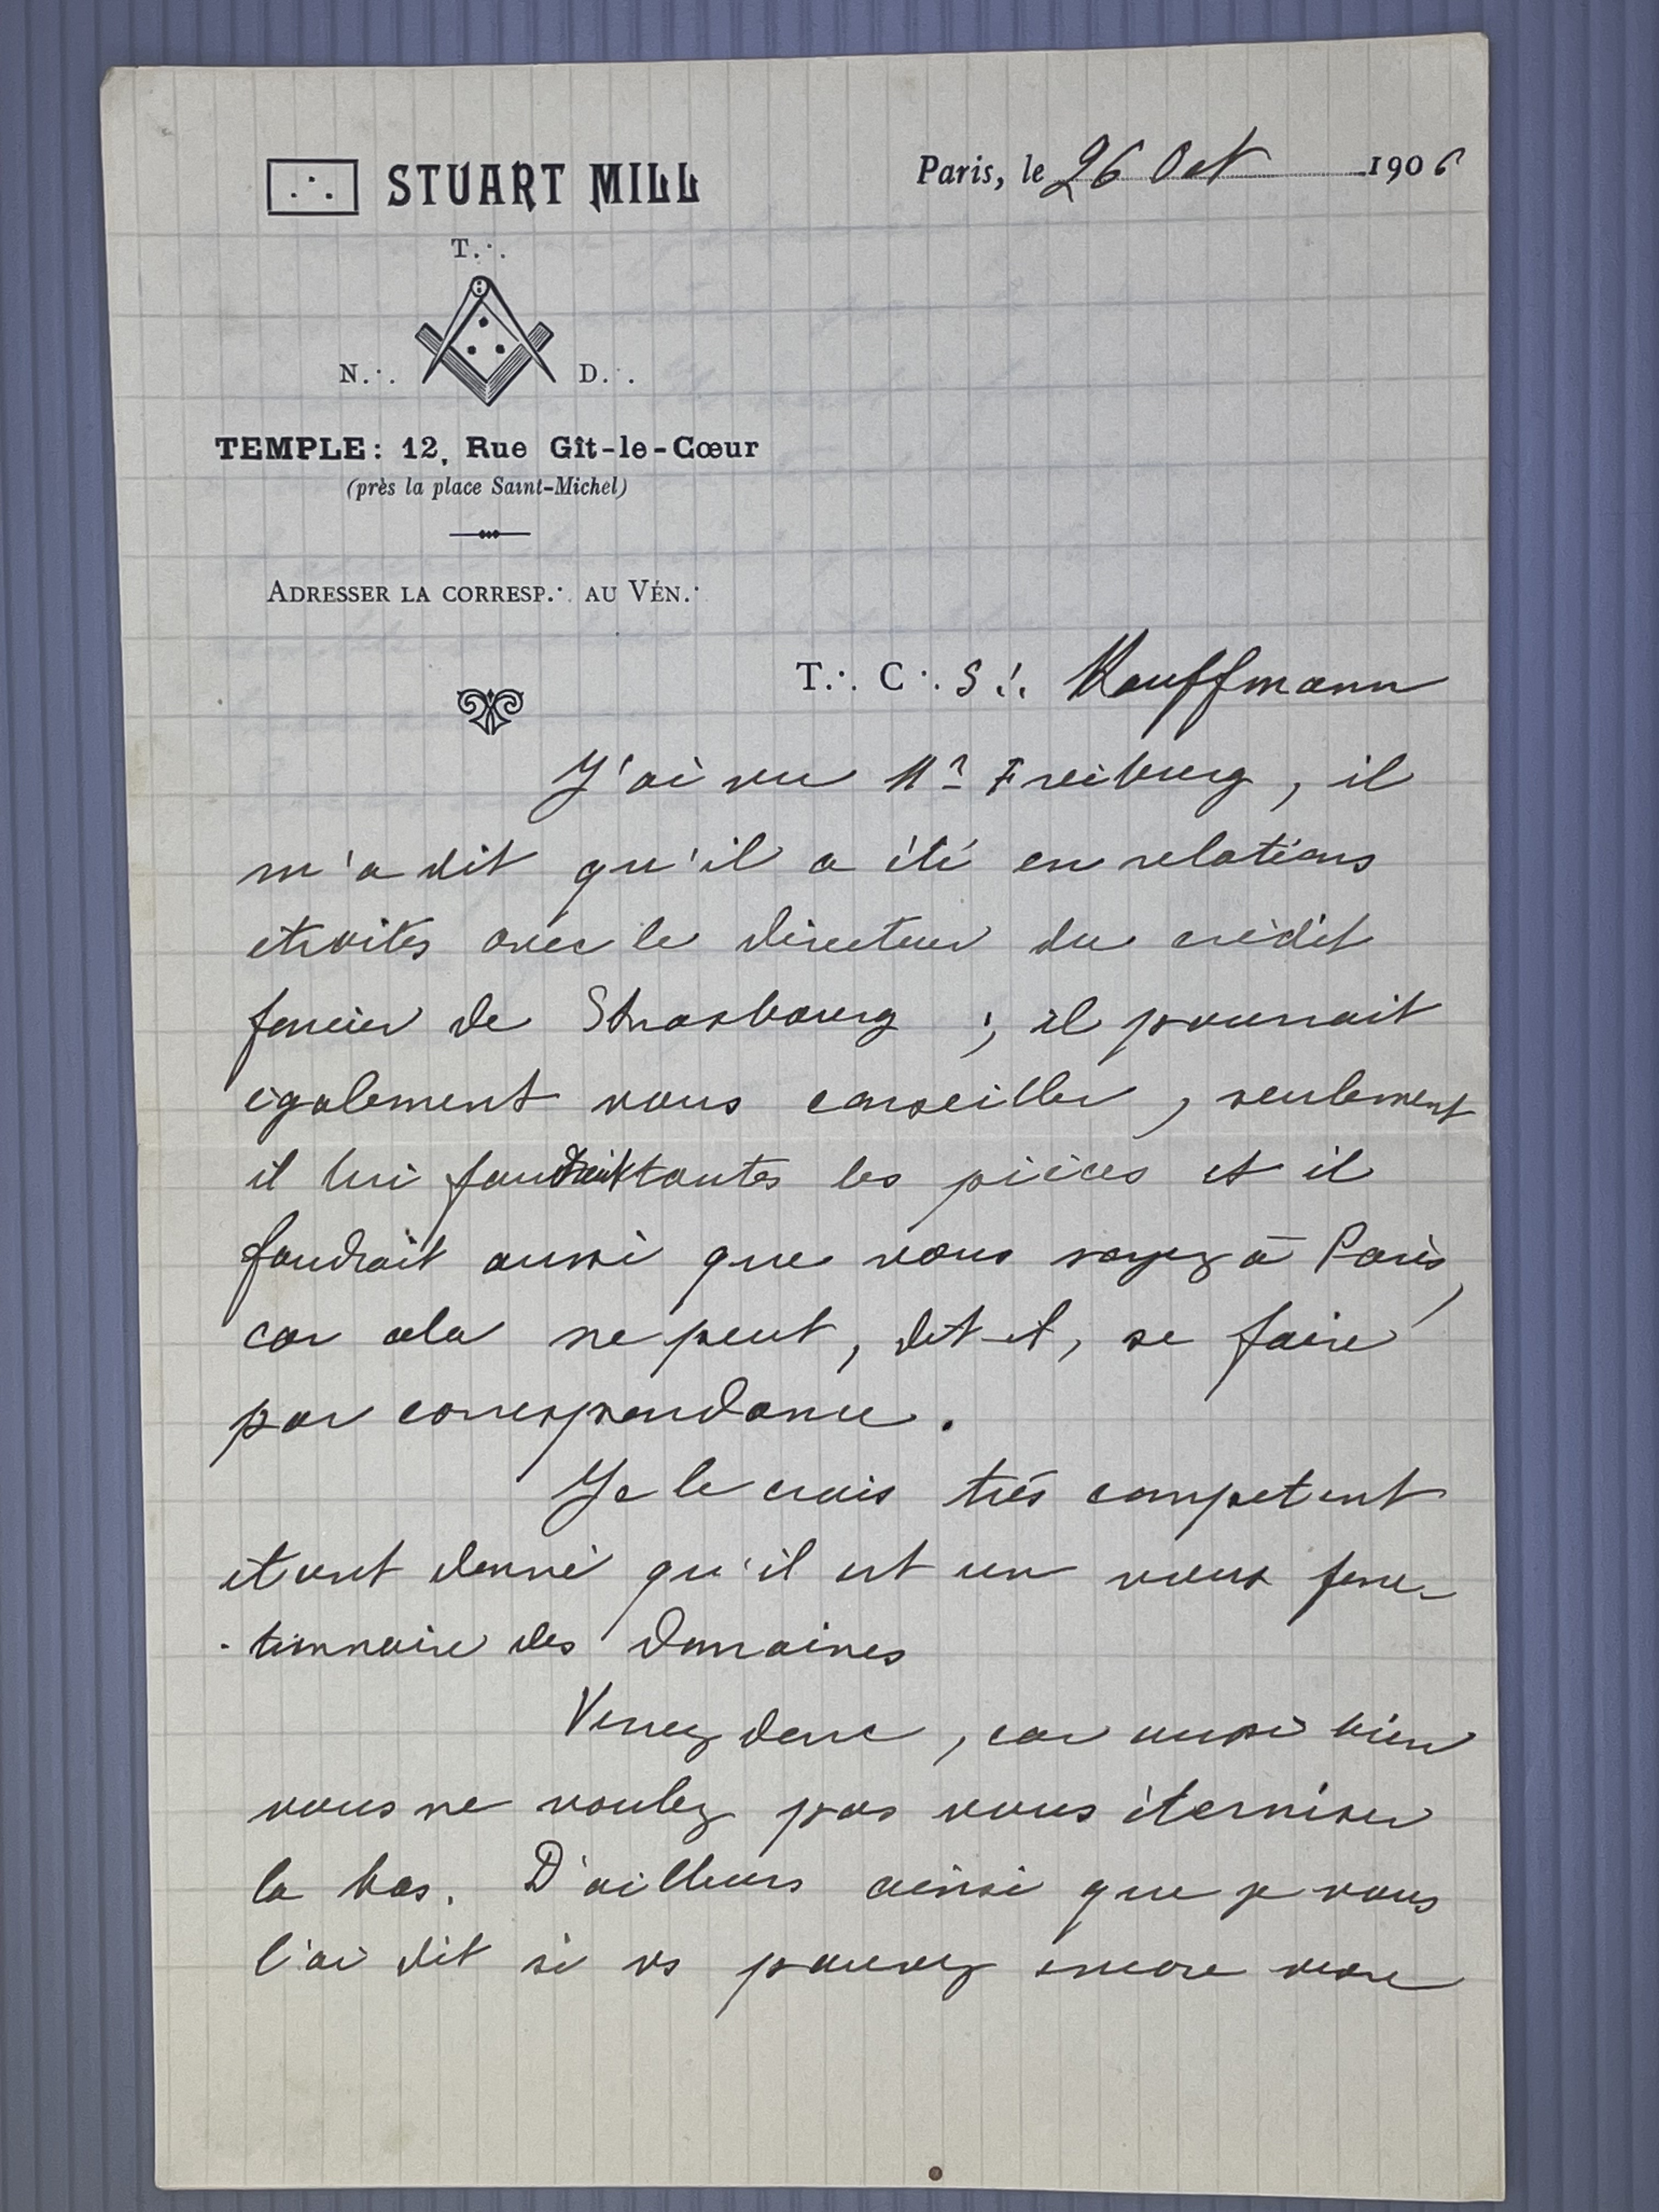 ∴ STUART MILL
Paris, le 26 Oct 1906
T∴
N∴ D∴
TEMPLE: 12, Rue Gît-le-Cœur
(près la place Saint-Michel)
ADRESSER LA CORRESP∴ AU VÉN∴
T∴ C∴ S∴ Kauffmann
J'ai vu Mr Freiburg, il
m'a dit qu'il a été en relations
etroites avec le directeur du crédit
foncier de Strasbourg ; il pourrait
également vous conseiller, seulement
il lui faudrait toutes les pièces et il
faudrait aussi que vous soyez à Paris,
car cela ne peut, dit-il, se faire
par correspondance.
Je le crois très competent
étant donné qu'il est un vieux fonc-
-tionnaire des Domaines
Venez donc, car aussi bien
vous ne voulez pas vous éterniser
la bas. D'ailleurs ainsi que je vous
l'ai dit si vs pouvez encore vivre